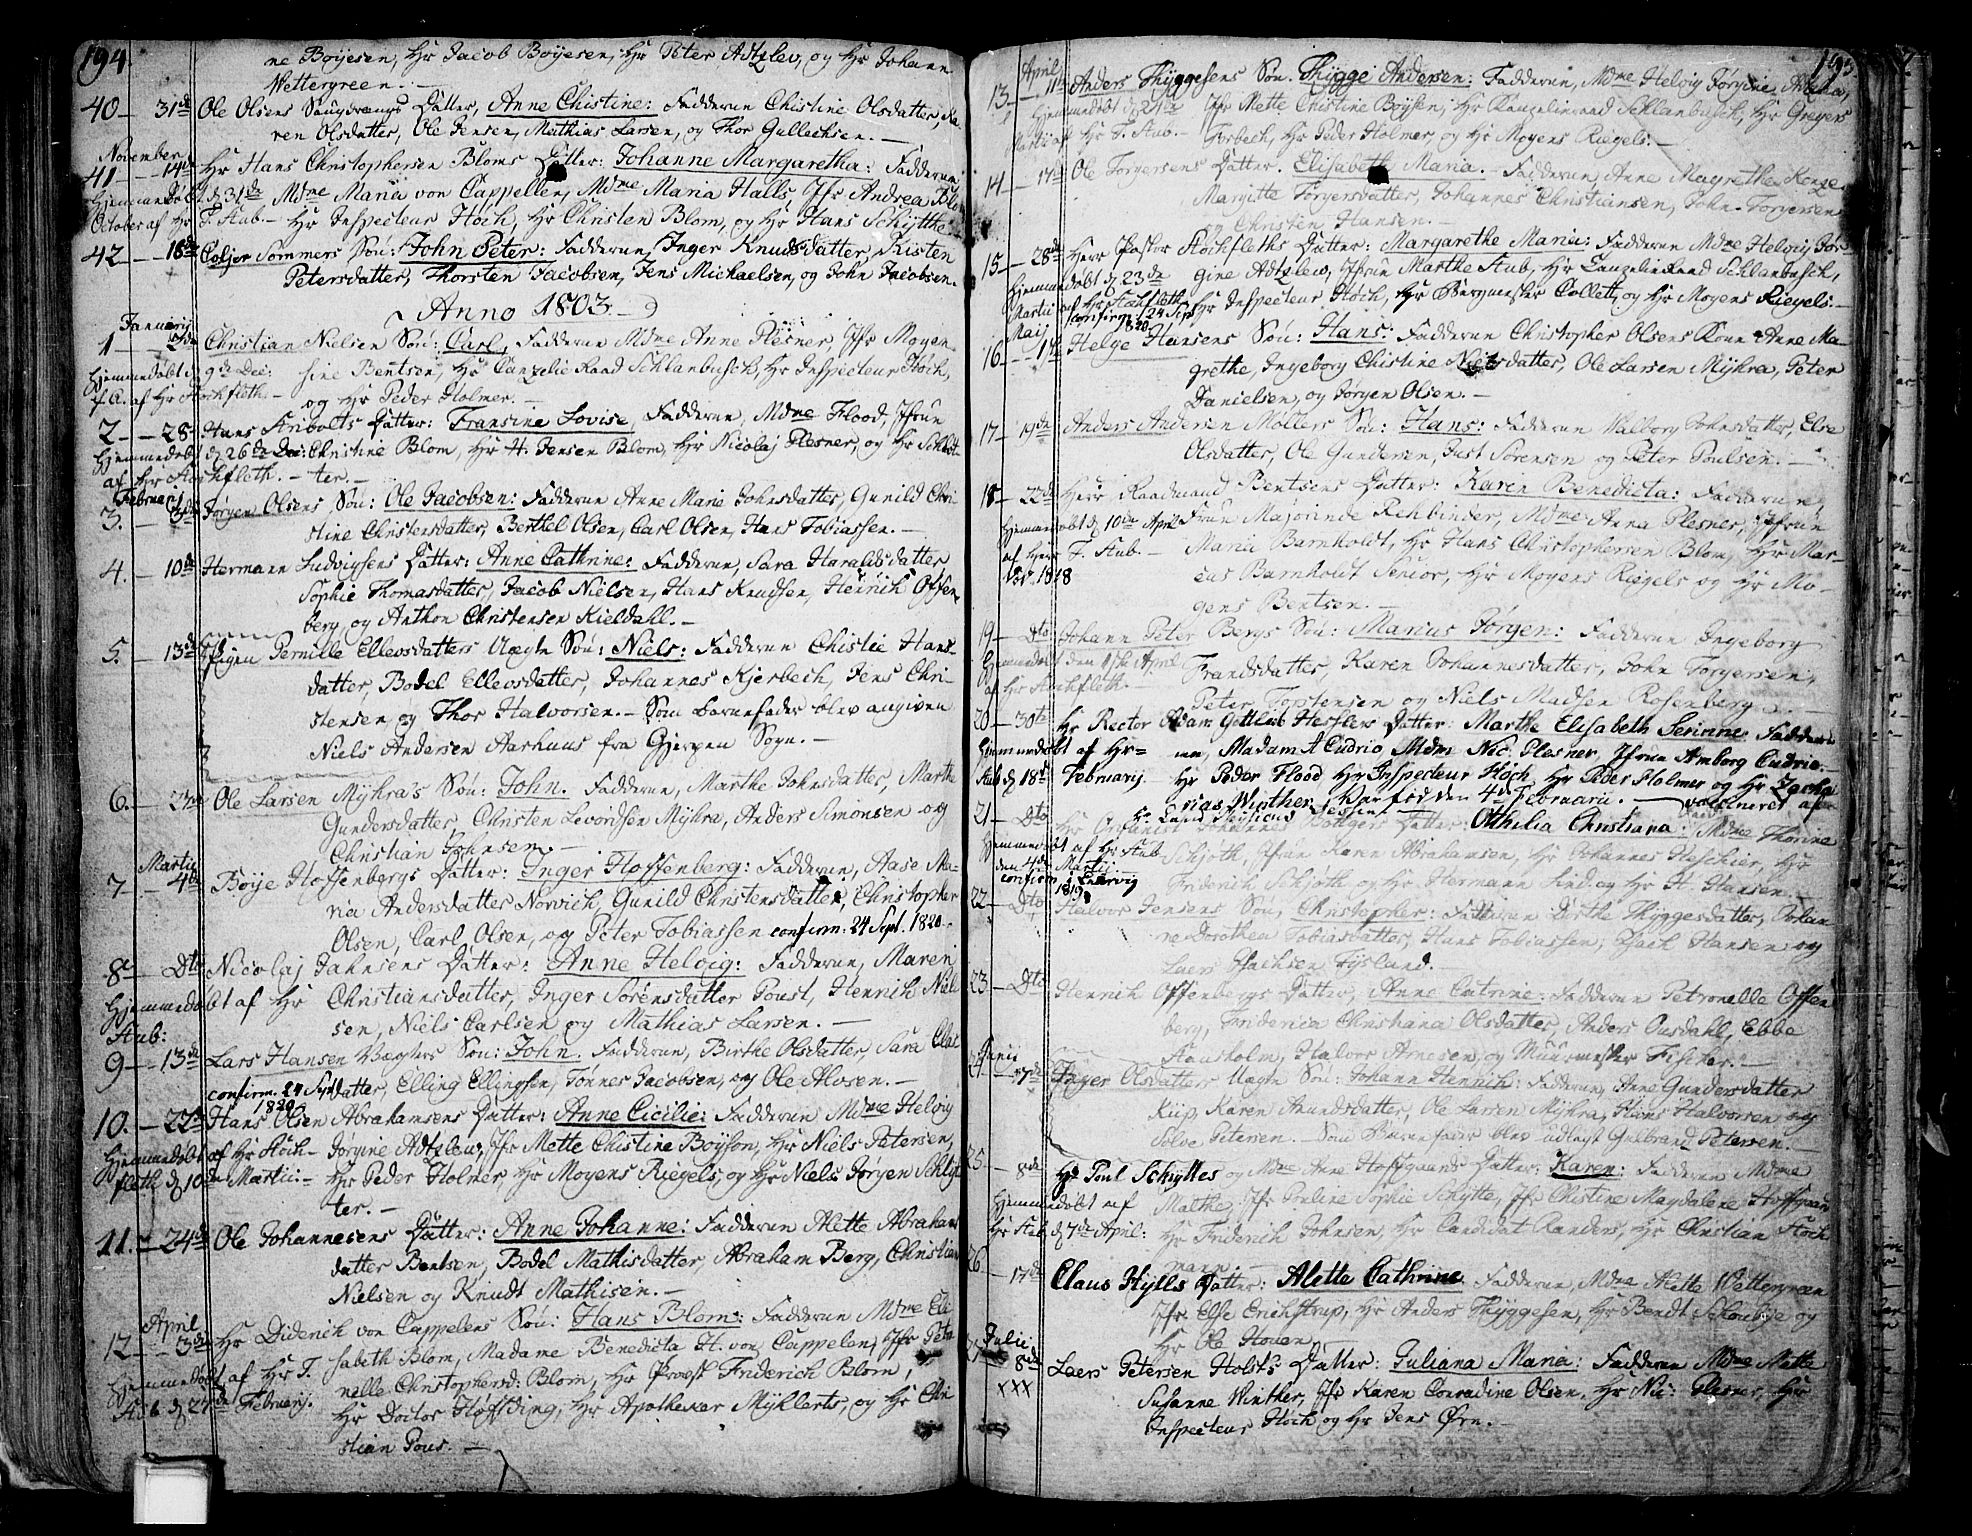 194.
ne Boyesen, Hr Jacob Boyesen, Hr Peter Adtzlew, og Hr Johann
Wettergreen. —
40 — 31de Ole Olsens Datter, Anne Chistine: Fadderne Christine Olsdatter, Ka-
ren Olsdatter, Ole Jensen, Mathias Larsen, og Thor Gullechsen. —
November
41 — 14de Hr Hans Christophersen Bloms Datter: Johanne Margaretha: Fadderne
Hjemmedøbt d 31de Mdme Maria von Cappellen, Mdme Maria Halls, Jfr Andrea Blom
October af Hr F. Stub. — Hr Inspecteur Höch, Hr Christen Blom, og Hr Hans Schytthe
42 — 18de Colsjør Sommers Søn: John Peter: Fadderne Inger Knudsdatter, Kisten
Petersdatter, Thorsten Jacobsen, Jens Michaelsen, og John Jacobsen.
Anno 1803.
Januarij
1 — 2de Christian Nielsen Søn: Carl, Fadderne Mdme Anne Plesner, Jfr Mogen
Hjemmedøbt d 9de Dec: sine Bentsen, Hr Canzelie Raad Schlanbusch, Hr Inspecteur Höch,
f. A. af Hr Stochfleth. — og Hr Peder Holmer. —
2 — 28 Hans Aribolts Datter: Fransine Lovise, Fadderne, Mdme Flood, Jfrun
Hjemmedøbt d 26de Dec: Christine Blom, Hr H. Jensen Blom, Hr Nicolaj Plesner, og Hr Schlöt-
af Hr Stochfleth. — ter. —
Februarij
3. — 3de Jørgen Olsens Søn: Ole Jacobsen: Fadderne Anne Maria Johnsdatter, Gunild Chri
stine Christensdatter, Berthel Olsen, Carl Olsen, Hans Tobiassen. —
4. — 10de Hermann Ludvigsens Datter: Anne Cathrine: Fadderne, Sara Haraldsdatter
Sophie Thomasdatter, Jacob Nielsen, Hans Knudsen, Henrich Offen-
berg, og Anthon Christensen Kieldahl. —
5. — 13de Pigen Pernille Ellevsdatters Uægte Søn: Niels: Fadderne Chistie Hans-
datter, Bodel Ellevsdatter, Johannes Kjerbech, Jens Chri-
stensen og Thor Halvorsen. — Som Barnefader blev angiven
Niels Andersen Aarhuus fra Gjerpen Sogn. —
6. — 23de Ole Larsen Mÿhra's Søn: John. Fadderne, Marthe Johnsdatter, Marthe
Gundersdatter, Christen Levordsen Mÿhra, Anders Simonsen og
Christian Johnsen. —
Martii
7 — 4de Boÿe Hoffenbergs Datter: Inger Hoffenberg: Fadderne, Aase Ma-
ria Andersdatter Norvich, Gunild Christensdatter, Christopher
Olsen, Carl Olsen, og Peter Tobiassen confirm: 24 Sept. 1820.
8 — Dto Nicolaj Jahnsens Datter: Anne Helvig: Fadderne, Maren
Hjemmedøbt af Hr Christiansdatter, Inger Sørensdatter Poust, Henrich Niel
Stub: sen, Niels Carlsen og Mathias Larsen. —
9 — 13de Lars Hansen Vægters Søn: John. Fadderne, Birthe Olsdatter, Sara Clas
confirm. 24 Sept datter, Elling Ellingsen, Tønnes Jacobsen, og Ole Alvsen. —
1820
10. — 22de Hans Olsen Abrahamsens Datter: Anne Cicilie: Fadderne Mdme Helvig
Hjemmedøbt af Hr Stoch- Jørgine Adtzlew, Jfr Mette Christine Boysen, Hr Niels Petersen,
fleth d 10de Martii: — Hr Peder Holmer, Hr Mogens Riegels, og Hr Niels Jørgen Schlyt
ter. —
11. — 24de Ole Johannesens Datter: Anne Johanne: Fadderne Alette Abrahams
datter Bentsen, Bodel Mathisdatter, Abraham Berg, Christian
Nielsen og Knudt Mathisen. —
April
12 — 3de Hr Diderich von Cappelens Søn: Hans Blom: Fadderne Mdme Eli
Hjemmedøbt af Hr F. sabeth Blom, Madame Benedicta H. von Cappelen, Jfr Petro
Stub d 27de Februarij. nelle Christophersd: Blom, Hr Provst Friderich Blom,
Hr Doctor Høffding, Hr Apotheker Mÿhlerts, og Hr Chri
stian Pous. —
195
April
13 — 11te Anders Thyggesens Søn. Thygge Andersen: Fadderne, Mdme Helvig Jørgine Adtzlew,
Hjemmedøbt d 24de Jfr Mette Christine Boysen, Hr Canzelieraad Schlanbusch, Hr Gregers
Martii af Hr F. Stub. — Forbech, Hr Peder Holmer, og Hr Mogens Riegels. —
14 — 17de Ole Torgersens Datter. Elisabeth Maria. — Fadderne, Anne Magrethe Konge
Margitte Torgersdatter, Johannes Christiansen, John Torgersen
og Christen Hansen. —
15 — 28de Herr Pastor Stochfleths Datter: Margarethe Maria: Fadderne Mdme Helvig Jør-
Hjemmedøbt d 23de gine Adtzlew, Jfrun Marthe Stub, Hr Canzelieraad Schlanbusch,
Martii af Hr Stochfleth Hr Inspecteur Höch, Hr Bergmester Collett, og Hr Mogens Riegels: —
confirm: 24 Sept
1820.
Maij
16 — 1te Helge Hansens Søn: Hans: Fadderne Christopher Olsens Kone Anne Ma-
grethe, Ingeborg Christine Nielsdatter, Ole Larsen Mÿhra, Peter
Danielsen, og Jørgen Olsen. —
17 — 19de Anders Andersen Møllers Søn: Hans: Fadderne Valborg Johnsdatter, Else
Olsdatter, Ole Gundersen, Just Sørensen og Peter Poulsen. —
18 — 22de Herr Raadmand Bentsens Datter: Karen Benedicta: Fadderne,
Hjemmedøbt d 10de April Frue Majorinde Rehbinder, Mdme Anna Plesner, Jfrun
af Herr F. Stub. — Maria Barnholdt, Hr Hans Christophersen Blom, Hr Mar-
1818 cus Barnholdt Senior, Hr Mogens Riegels og Hr Mo-
gens Bentsen. —
19 — Dto Johann Peter Bergs Søn: Marius Jørgen: Fadderne Ingeborg
Hjemmedøbt den 1ste April Frandsdatter, Karen Johannesdatter, John Torgersen,
af Hr Stochfleth. — Peter Torstensen og Niels Madsen Rosenberg. —
20 — 30te Hr Rector Adam Gottlieb Hesslers Datter: Marthe Elisabeth Serinne: Fadder
Hjemmedøbt af Hr = ne, Madam A Cudrio Mdm Nic. Plesner, Jfrun Amborg Cudrio.
Stub d 18de Februarij. Hr Peder Flood Hr Inspecteur Höch, Hr Peder Holmer og Hr Zacha
rias Winther, Var fød den 4de Februarii. — vaccineret af
Hr Land Physicus Dessine
21 — Dto Hr Organist Johannes Bøttgers Datter: Otthilia Christiana: Mdme Thorine
Hjemmedøbt af Hr Stub Schjøth, Jfrun Karen Abrahamsen, Hr Johannes Heschier, Hr
den 4de Martij Friderich Schjøth og Hr Hermann Lind og Hr H. Hansen.
confirm i Laurvig
1819.
22 — Dto Halvor Jensens Søn, Christopher: Fadderne Dorthe Thyggesdatter, Johan
ne Dorothea Tobiasdatter, Hans Tobiassen, Isach Hansen og
Laers Isachsen Fysland. —
23 — Dto Henrich Offenbergs Datter, Anne Catrine: Fadderne Petronelle Offen
berg, Friderica Christiana Olsdatter, Anders Ousdahl, Ebbe
Hausholm, Halvor Arnesen, og Muurmester Fischer. —
Junij
24. — 7de Inger Olsdatters Uægte Søn: Johann Henrich: Fadderne, Anne Gundersdatter
Kiip, Karen Amundsdatter, Ole Larsen Mÿhra, Hans Halvorsen, og
Solve Petersen. — Som Barnefader blev udlagt Gulbrand Petersen. —
25 — 8de Hr Poul Schyttes og Mdme Anne Hoffgaards Datter: Karen: Fadderne Mdme
Hjemmedøbt af Malthe, Jfr Pouline Sophie Schytte, Jfr Christine Magdalene Hoffgaar
Hr Stub, d 7de April: Hr Friderich Johnsen, Hr Candidat Randers, Hr Christian Hoch
mann. —
26. — 17de Claus Hylls Datter: Alette Cathrine: Fadderne, Mdme Alette Wettergreen
Jfr. Else Erichstrup, Hr Anders Thyggesen, Hr Bendt Schoubye og
Hr Ole Hoven. —
Julii
27 — 8de Laers Petersen Holst's Datter: Juliana Maria: Fadderne Mdme Mette
XXX Susanne Winther, Jfr Karen Conradine Olsen, Hr Nic: Plesner, Hr
Inspecteur Höch og Hr Jens Ørn. —